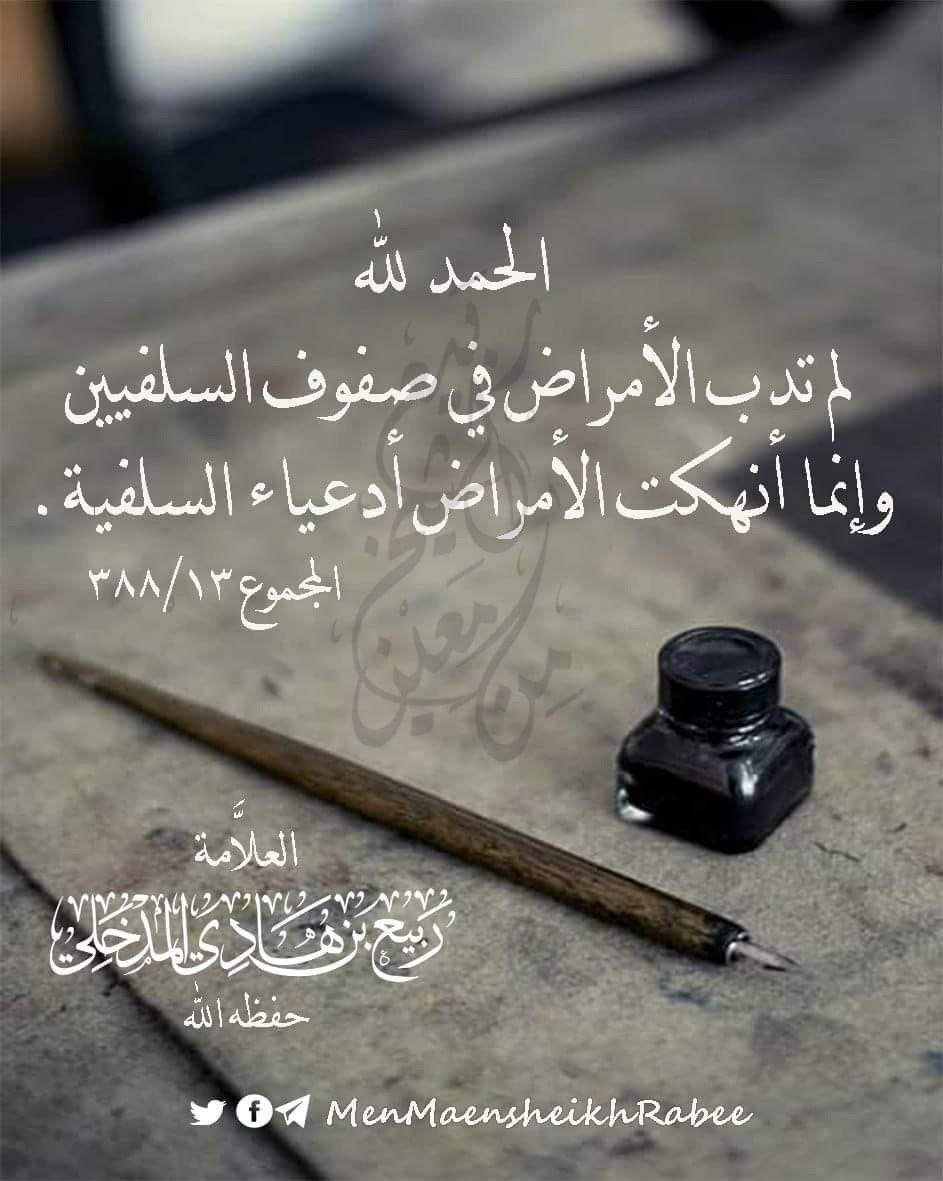 الحمد لله
لم تدب الأمراض في صفوف السلفيين
وإنما أنهكت الأمراض أدعياء السلفية .
المجموع ٣٨٨/١٣
من معين الشيخ ربيع
العلاَّمة
رَبِيع بن هَادِي المَدْخَلِي
حفظه الله
MenMaensheikhRabee